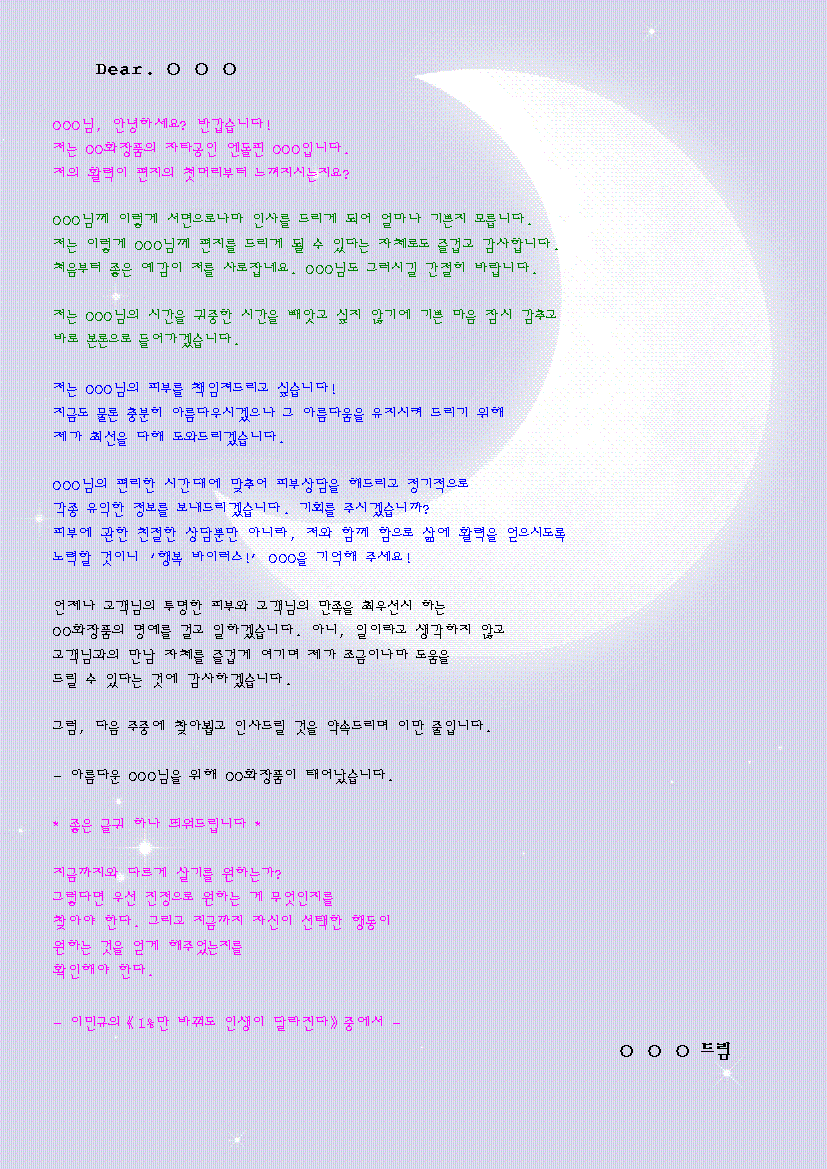 Dear. ○ ○ ○
○○○님, 안녕하세요? 반갑습니다!
저는 ○○화장품의 자타공인 엔돌핀 ○○○입니다.
저의 활력이 편지의 첫머리부터 느껴지시는지요?
○○○님께 이렇게 서면으로나마 인사를 드리게 되어 얼마나 기쁜지 모릅니다.
저는 이렇게 ○○○님께 편지를 드리게 될 수 있다는 자체로도 즐겁고 감사합니다.
처음부터 좋은 예감이 저를 사로잡네요. ○○○님도 그러시길 간절히 바랍니다.
저는 ○○○님의 시간을 귀중한 시간을 빼앗고 싶지 않기에 기쁜 마음 잠시 감추고
바로 본론으로 들어가겠습니다.
저는 ○○○님의 피부를 책임져드리고 싶습니다!
지금도 물론 충분히 아름다우시겠으나 그 아름다움을 유지시켜 드리기 위해
제가 최선을 다해 도와드리겠습니다.
○○○님의 편리한 시간대에 맞추어 피부상담을 해드리고 정기적으로
각종 유익한 정보를 보내드리겠습니다. 기회를 주시겠습니까?
피부에 관한 친절한 상담뿐만 아니라, 저와 함께 함으로 삶에 활력을 얻으시도록
노력할 것이니 '행복 바이러스!' ○○○을 기억해 주세요!
언제나 고객님의 투명한 피부와 고객님의 만족을 최우선시 하는
○○화장품의 명예를 걸고 일하겠습니다. 아니, 일이라고 생각하지 않고
고객님과의 만남 자체를 즐겁게 여기며 제가 조금이나마 도움을
드릴 수 있다는 것에 감사하겠습니다.
그럼, 다음 주중에 찾아뵙고 인사드릴 것을 약속드리며 이만 줄입니다.
- 아름다운 ○○○님을 위해 ○○화장품이 태어났습니다.
* 좋은 글귀 하나 띄워드립니다 *
지금까지와 다르게 살기를 원하는가?
그렇다면 우선 진정으로 원하는 게 무엇인지를
찾아야 한다. 그리고 지금까지 자신이 선택한 행동이
원하는 것을 얻게 해주었는지를
확인해야 한다.
- 이민규의《1%만 바꿔도 인생이 달라진다》중에서 -
○ ○ ○ 드림